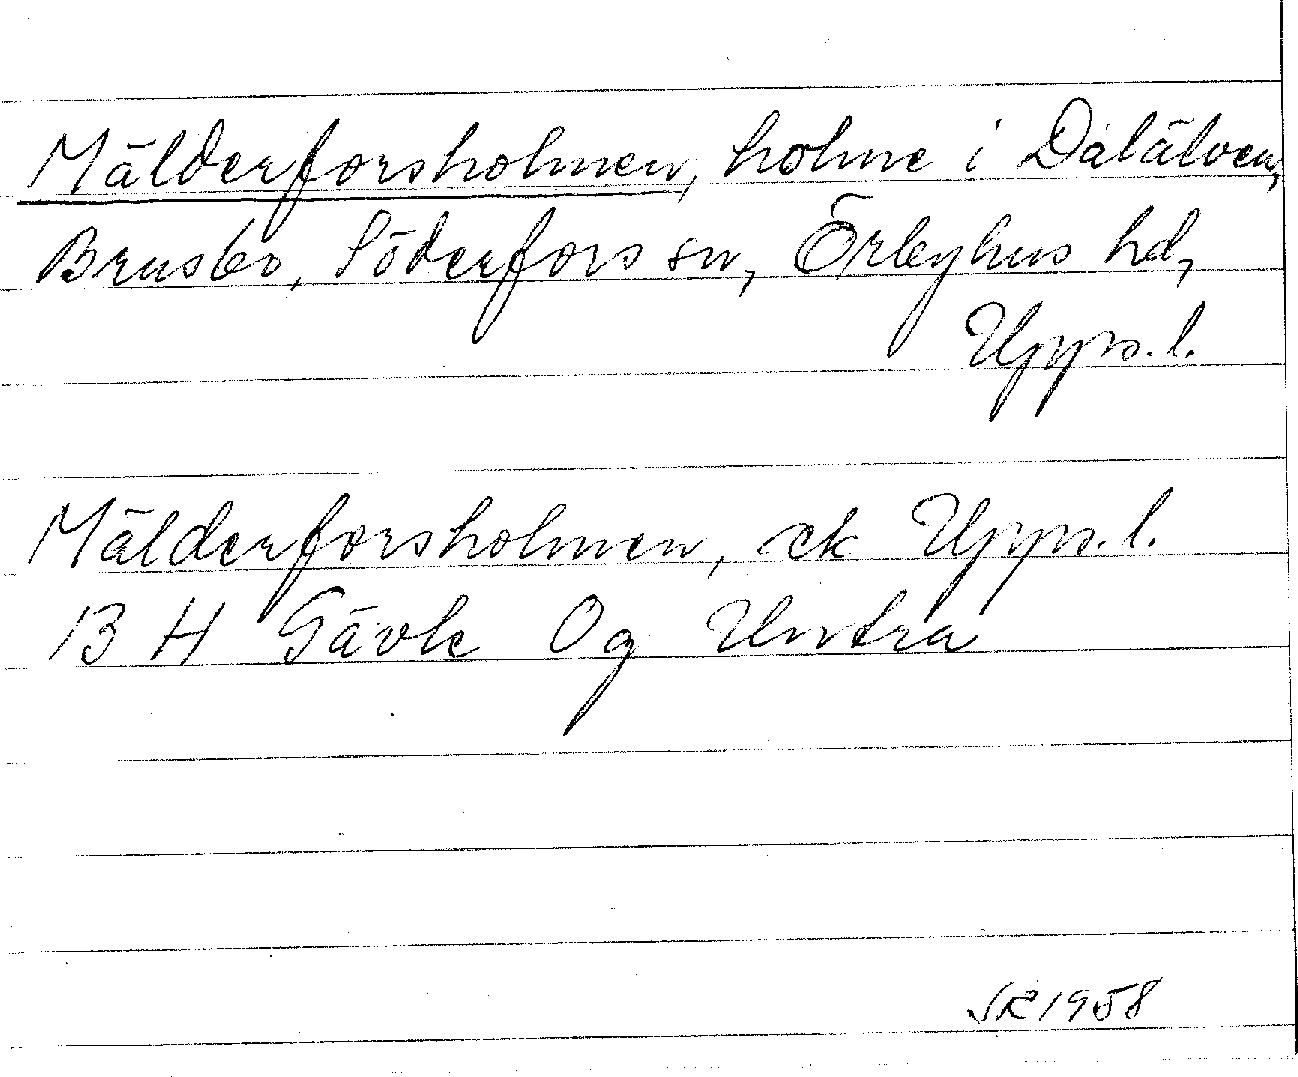 Mälderforsholmen, holme i Dalälven,
Brusbo, Söderfors sn, Örbyhus hd,
Upps.l.
Mälderforsholmen, ek Upps.l.
13 H Gävle Og Untra
1958